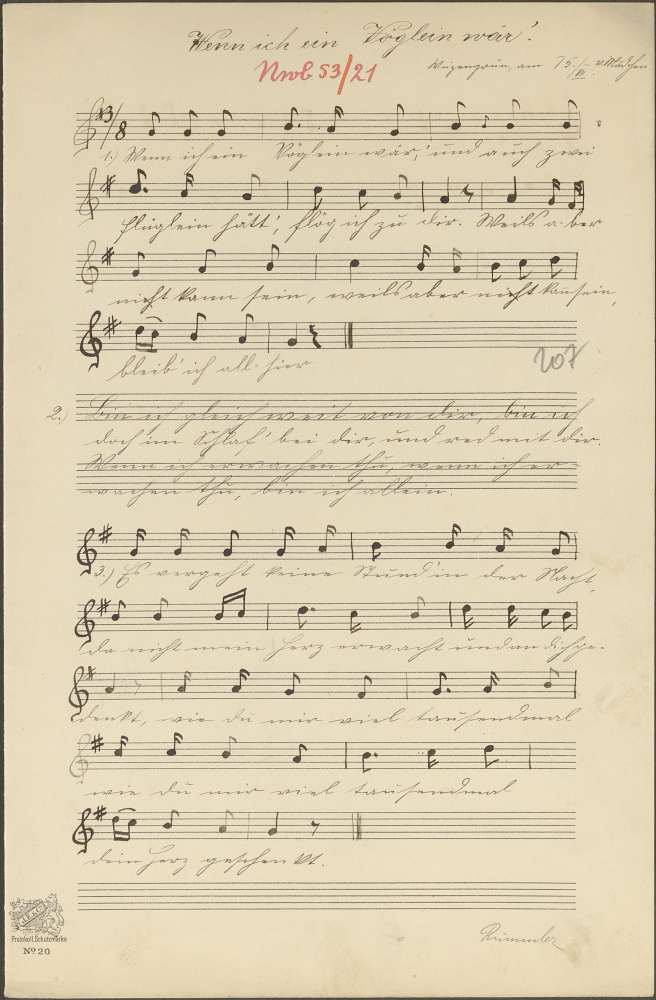 Wenn ich ein Vöglein wär'.
Nwb 53/21
am 15./VI. v. Mädchen
3/8
1.) Wenn ich ein Vöglein wär,' und auch zwei
flüglein hätt', flög ich zu dir. Weils aber
nicht kann sein, weils aber nicht kan sein,
bleib' ich all. hier
207
2.) Bin ich gleich weit von dir, bin ich
doch im Schlaf' bei dir, und red mit dir.
Wenn ich erwachen thu, wenn ich er-
wachen thu, bin ich allein.
3.) Es vergeht keine Stund' in der Nacht,
da nicht mein Herz erwacht und an dich ge-
denkt, wie du mir viel tausendmal
wie du mir viel tausendmal
dein Herz geschenkt.
Rümmler
Protokoll. Schutzmarke
No 20